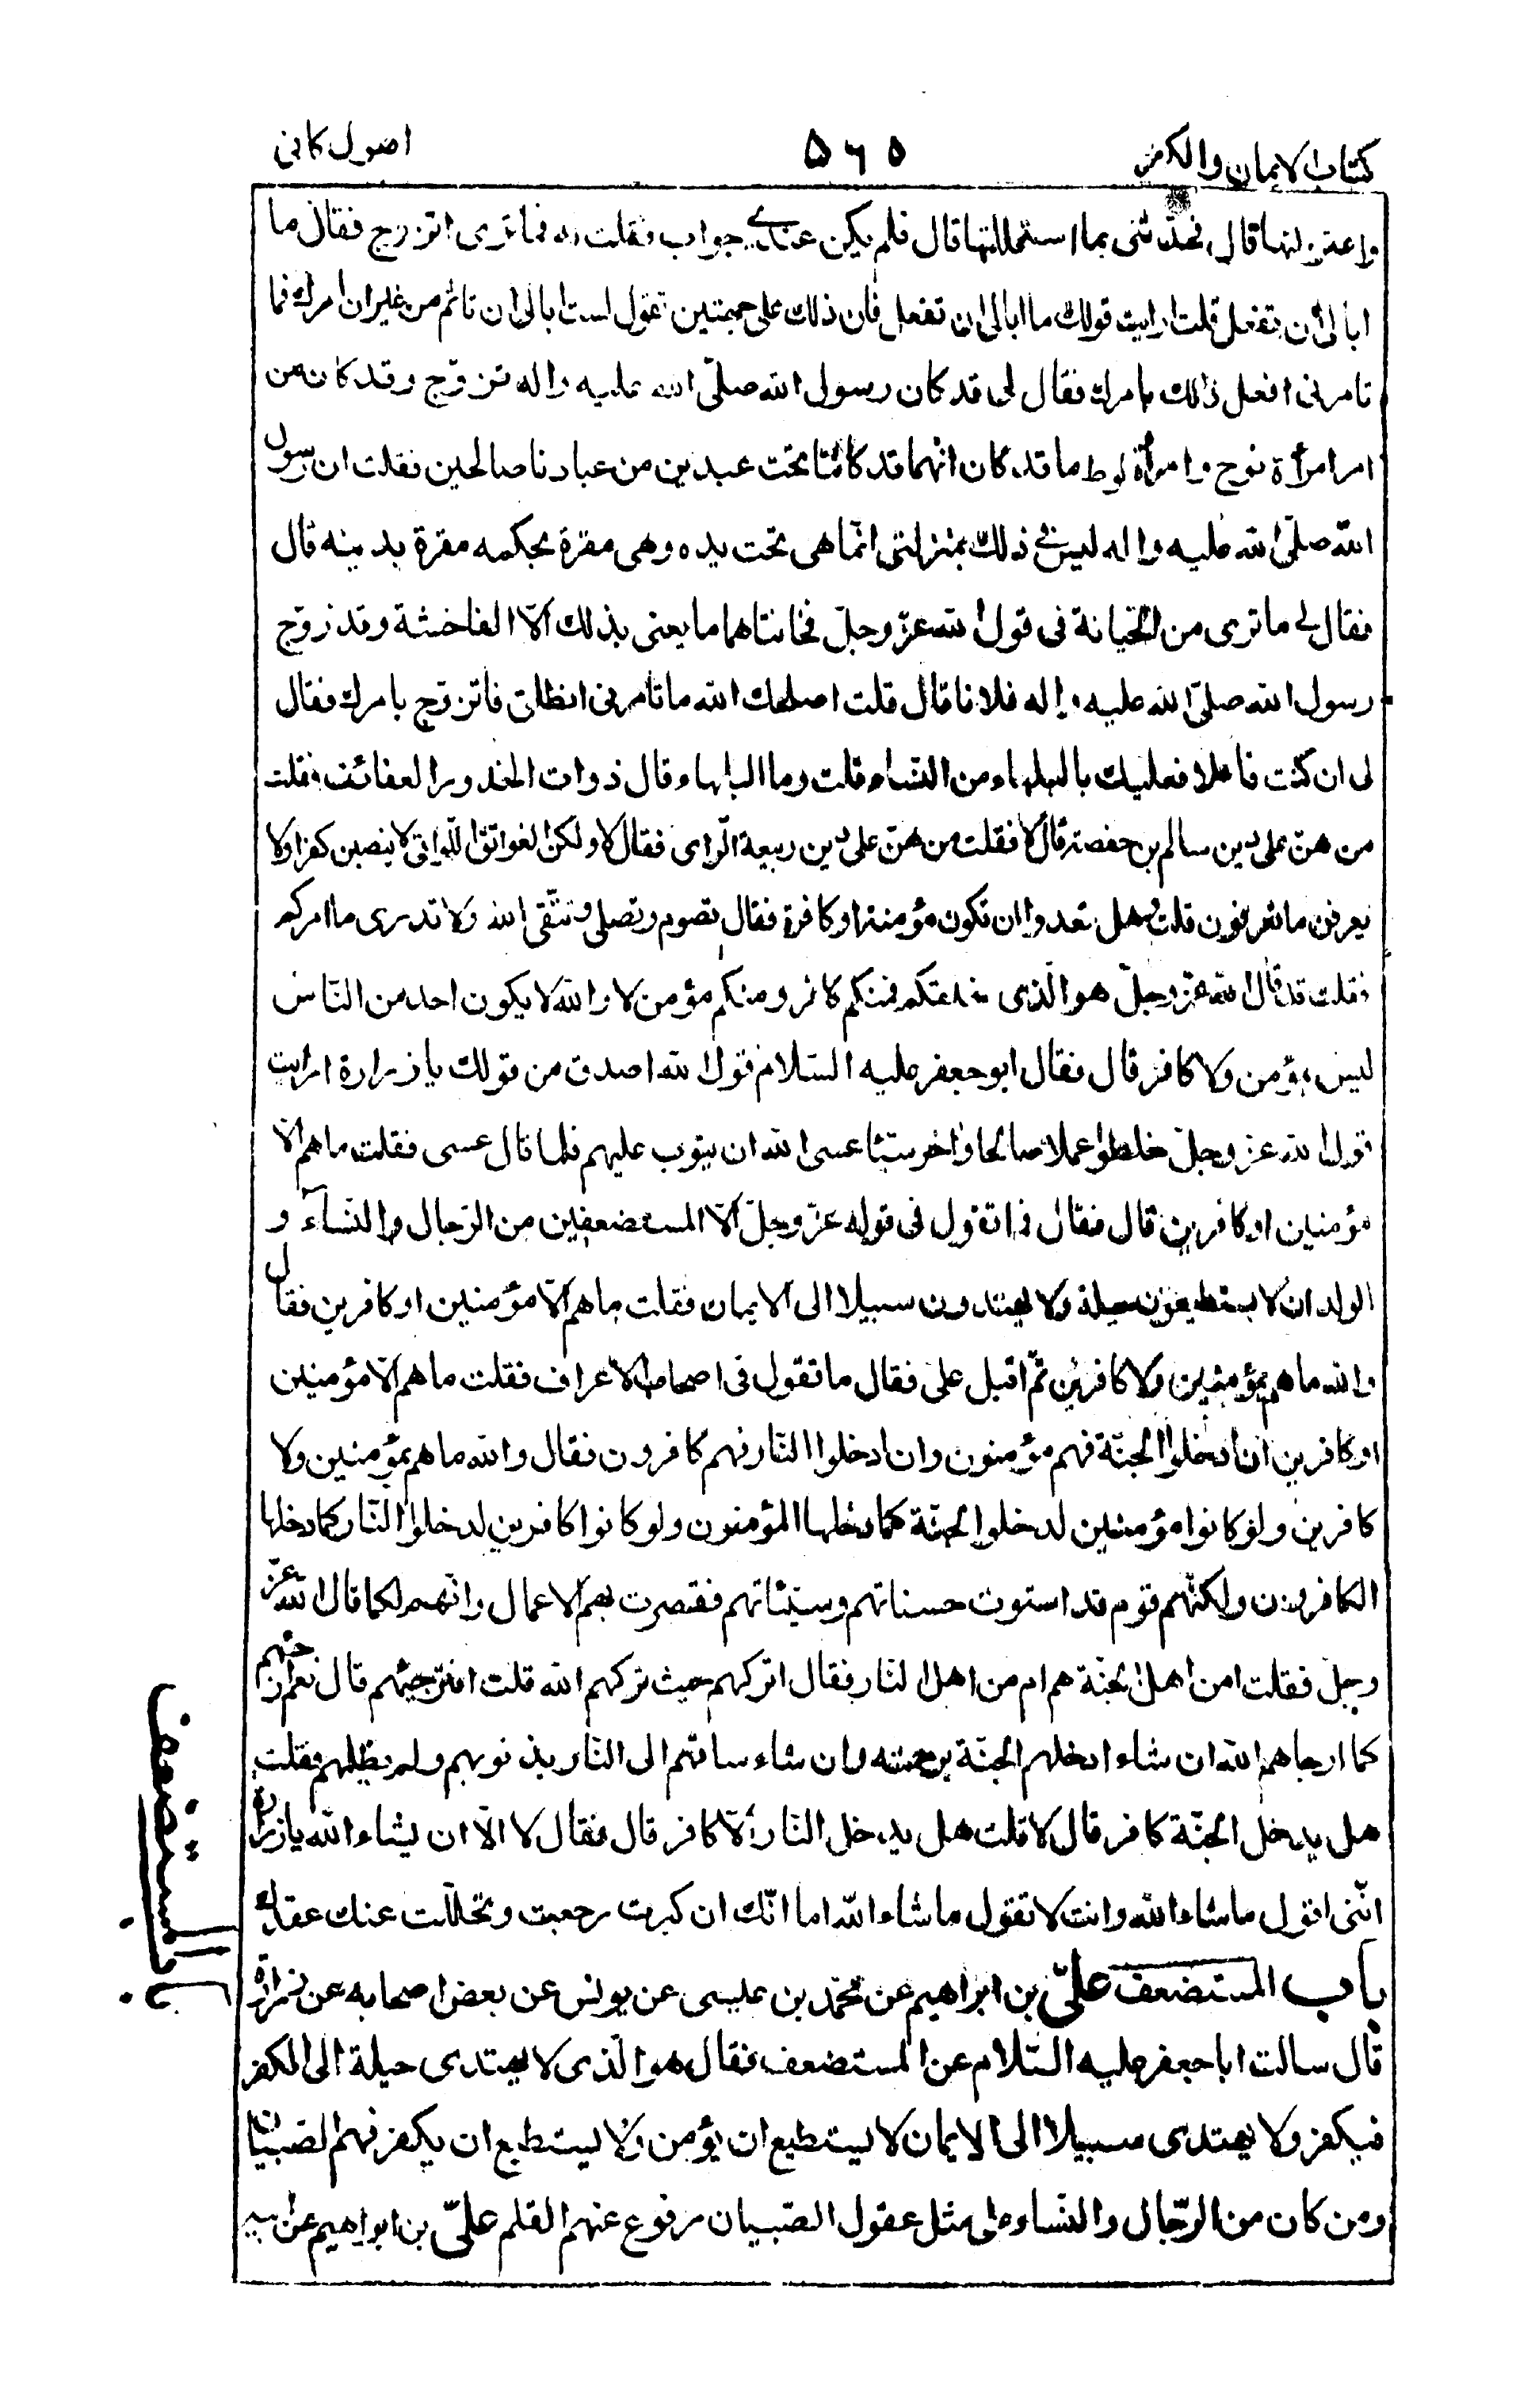 كتاب الايمان والكفر
۵۶۵
اصول كافى
واعتزلتها قال فحدّثنى بما استحللتها قال فلم يكن عندى جواب فقلت له فما ترى اتزوج فقال ما
ابالى أن تفعل قلت ارايت قولك ما ابالى ان تفعل فان ذلك على جهتين تقول لست ابالى ان تاثم من غير ان امرك فما
تامرنى افعل ذلك بامرك فقال لى قد كان رسول الله صلّى الله عليه واله تزوّج وقد كان من
امر امرأة نوح وامرأة لوط ما قد كان انهما قد كانتا تحت عبدين من عبادنا صالحين فقلت ان رسول
الله صلّى الله عليه واله ليس فى ذلك بمنزلتى انّما هى تحت يده وهى مقرة بحكمه مقرة بدينه قال
فقال لى ما ترى من الخيانة فى قول الله عزّ وجلّ فخانتاهما ما يعنى بذلك الّا الفاحشة وقد زوّج
رسول الله صلّى الله عليه واله فلانا قال قلت اصلحك الله ما تامرنى انطلق فاتزوّج بامرك فقال
لى ان كنت فاعلا فعليك بالبلهاء من النّساء قلت وما البلهاء قال ذوات الخدور العفائف فقلت
من هنّ على دين سالم بن حفصة قال لا فقلت من هنّ على دين ربيعة الرّاى فقال لا ولكن العواتق اللّواتى لا ينصبن كفرا ولا
يعرفن ما تعرفون قلت وهل تعدوا ان تكون مؤمنة او كافرة فقال تصوم وتصلى وتتّقى الله ولا تدرى ما امركم
فقلت قد قال الله عزّ وجلّ هو الّذى خلقكم فمنكم كافر ومنكم مؤمن لا والله لا يكون احد من النّاس
ليس بمؤمن ولا كافر قال فقال ابو جعفر عليه السّلام قول الله اصدق من قولك يا زرارة ارايت
قول الله عزّ وجلّ خلطوا عملا صالحا واخر سيّئا عسى الله ان يتوب عليهم فلما قال عسى فقلت ما هم الّا
مؤمنين او كافرين قال فقال فما تقول فى قوله عزّ وجلّ الّا المستضعفين من الرّجال والنّساء و
الولدان لا يستطيعون حيلة ولا يهتدون سبيلا الى الايمان فقلت ما هم الّا مؤمنين او كافرين فقال
والله ما هم بمؤمنين ولا كافرين ثمّ اقبل على فقال ما تقول فى اصحاب الاعراف فقلت ما هم الّا مؤمنين
او كافرين ان دخلوا الجنّة فهم مؤمنون وان دخلوا النّار فهم كافرون فقال والله ما هم بمؤمنين ولا
كافرين ولو كانوا مؤمنين لدخلوا الجنّة كما دخلها المؤمنون ولو كانوا كافرين لدخلوا النّار كما دخلها
الكافرون ولكنّهم قوم قد استوت حسناتهم وسيّئاتهم فقصرت بهم الاعمال وانّهم لكما قال الله عزّ
وجلّ فقلت امن اهل الجنّة هم ام من اهل النّار فقال اتركهم حيث تركهم الله قلت افترجيهم قال نعم ارجيهم
كما ارجاهم الله ان شاء ادخلهم الجنّة برحمته وان شاء ساقهم الى النّار بذنوبهم ولم يظلمهم فقلت
هل يدخل الجنّة كافر قال لا قلت هل يدخل النّار الّا كافر قال فقال لا الّا ان يشاء الله يا زرارة
انّنى اقول ما شاء الله وانت لا تقول ما شاء الله اما انّك ان كبرت رجعت وتحلّلت عنك عقدك
باب المستضعف علىّ بن ابراهيم عن محمّد بن عيسى عن يونس عن بعض اصحابه عن زرارة
قال سالت ابا جعفر عليه السّلام عن المستضعف فقال هو الّذى لا يهتدى حيلة الى الكفر
فيكفر ولا يهتدى سبيلا الى الايمان لا يستطيع ان يؤمن ولا يستطيع ان يكفر فهم الصّبيان
ومن كان من الرّجال والنّساء على مثل عقول الصّبيان مرفوع عنهم القلم علىّ بن ابراهيم عن ابيه
باب المستضعف